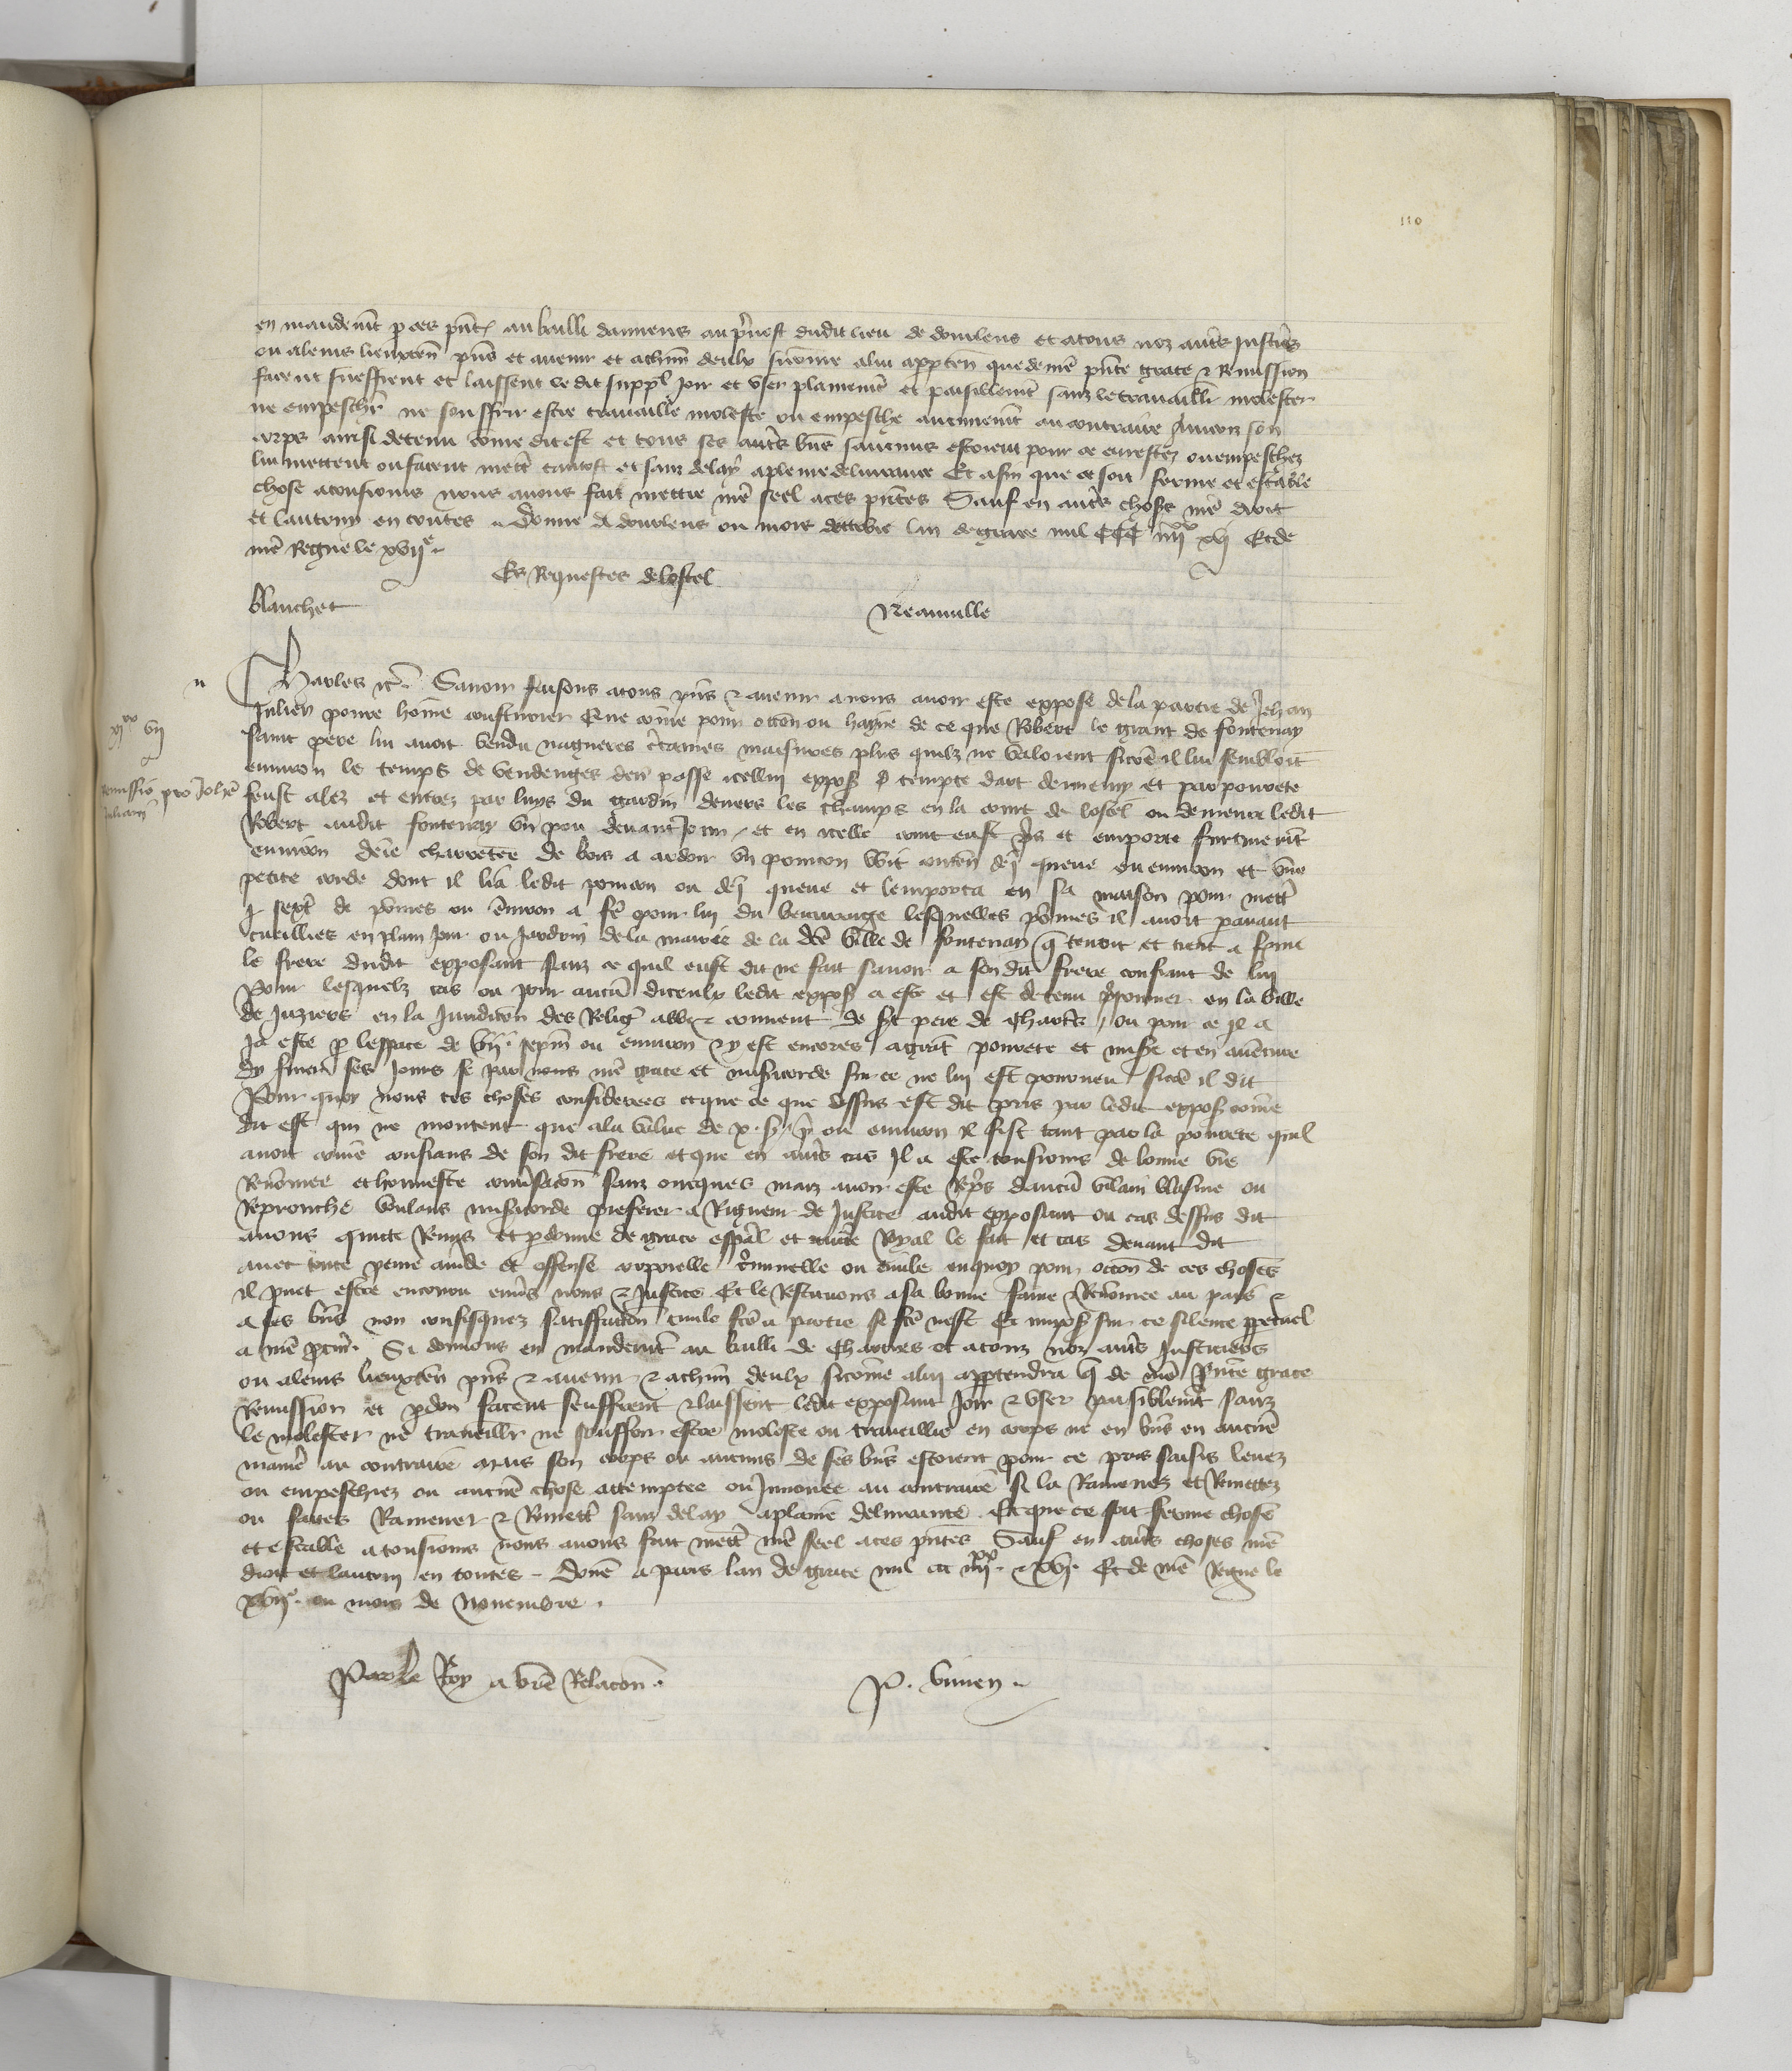 110
en mandemt p ces pntes au bailli damiens au pvost dudit lieu de doulens et a tous noz autres justiciers
ou a leurs lieuxten pns et avenir et a chun deulx sicome a lui apptendra que de nre pnte grace & remission
facent sueffrent et laissent ledit suppl joir et user plainemt et paisiblemt sanz le travaillier molester
ne empeschr ne souffrir estre travaillie moleste ou empesche aucunemt au contraire Aincois son
corps ainsi detenu come dit est et tous ses autres bns saucuns estoient pour ce arrestez ou empeschez
lui mettent ou facent mettre tantost et sanz delay a pleine delivrance Et afin que ce soit ferme et estable
chose a tousiours nous avons fait mettre nre seel a ces pntes Sauf en autres choses nre droit
et lautruy en toutes Donne a doulens ou mois doctobre lan de grace mil CCC iiijxx xvj Et de
nre Regne le xvije
Es Requestes de lostel
blanchet
Neauville
Charles &c Savoir faisons a tous pns & avenir a nous avoir este expose de la partie de Jehan
Julien povre home cousturier Que come pour occon ou hayne de ce que Robert le grant de fontenay
saint pere lui avoit vendu nagueres ctaines maisures plus quelz ne valoient sicoe il lui sembloit
xjxx vij
Remissio pro Johe
Juliani
environ le temps de vendenges derr passe icellui expos et par povrete
feust alez et entrez par luys du gardin devers les champs en la court de lostel ou demeure ledit
Robert audit fontenay un pou devant jour et en icelle court eust pris et emporte furtivemt
environ deie charretee de bois a ardoir un poincon vuit conten dej queue ou environ et une
petite corde dont il lia ledit poincon ou dej queue et lemporta en sa maison pour mettre
j sext de pomes ou environ a fe pour lui du bevvrage lesquelles pomes il avoit paravant
cueillies en plain jour ou jardrin de la mairie de la dce ville de fontenay q tenoit et tient a ferme
le frere dudit exposant sanz ce quil eust dit ne fait savoir a son dit frere confiant de lui
Pour lesquelz cas ou pour aucun diceulx ledit expos a este et est detenu prisonnier en la ville
de Juziers en la juridicon des Relig abbe & couvent de st pere de Chartres ou pour ce il a
ja este p lespace de vij sepm ou environ & y est encores a grant povrete et misere et en aventure
dy finer ses jours se par nous nre grace et misicorde sur ce ne lui est pourveu sicoe il dit
Pour quoy nous ces choses considerees et que ce que dessus est dit pris par ledit expos come
dit est qui ne montent que a la value de x s p ou environ il fist tant par la povrete quil
avoit come confians de son dit frere et que en autres cas Il a este tousiours de bonne vie
Renomee et honneste conversacon sanz oncques mais avoir este repris daucun vilain blasme ou
Reprouche voulans misicorde preferer a Rigueur de Justice audit exposant ou cas dessus dit
avons quicte Remis et pdonne de grace espal et aucte Royal le fait et cas devant dit
avec toute peine amde et offense corporelle criminelle ou civile en quoy pour occon de ces choses
il puet estre encouru envers nous & Justice Et le Restituons a sa bonne fame & Renomee au pais &
a ses bns non confisquez satisfacon civile fce a partie se fce nest Et impos sur ce silence perpetuel
a nre pcur Si donnons en mandemt au bailli de Chartres et a touz noz autres Justiciers
ou a leurs lieuxten pns & avenir & a chun deulx sicome a lui apptendra q de nre pnte grace
Remission et pdon facent seuffrent & laissent ledit exposant joir & user paisiblemt sanz
le molester ne travaillr ne souffrir estre moleste ou travaillie en corps ne en bns en aucune
maniere au contraire mais son corps ou aucuns de ses bns estoient pour ce pris saisis levez
ou empeschiez ou aucune chose attemptee ou Innovee au contraire si la Ramenez et Remettez
ou faites Ramener & Remettre sanz delay a plaine delivrance Et que ce soit ferme chose
et estable a tousiours nous avons fait mettre nre seel a ces pntes Sauf en autres choses nre
droit et lautruy en toutes Donne a paris lan de grace mil ccc iiijxx & xvj Et de nre Regne le
xvije ou mois de Novembre
Par le Roy a vre Relacon
P. Vivien